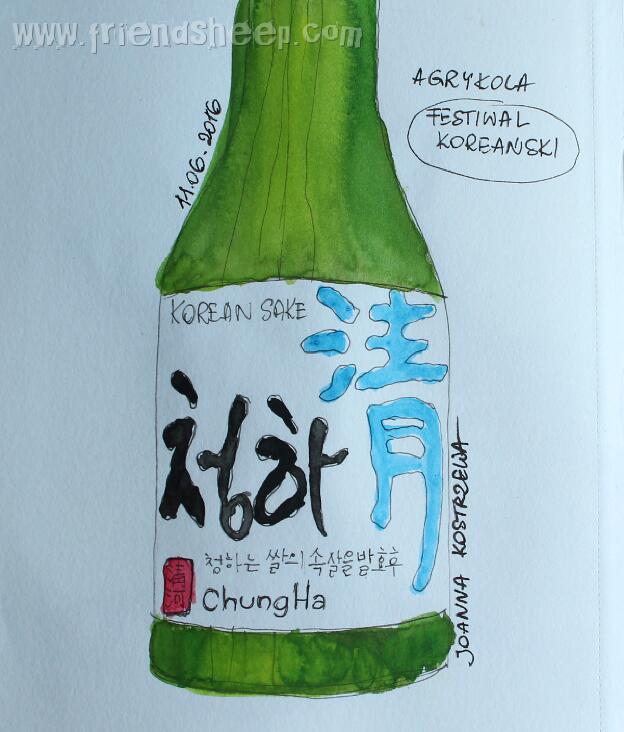 www.friendsheep.com
11.06.2016
AGRYKOLA
FESTIWAL
KOREANSKI
KOREAN SAKE
清
청하
청하는 쌀의 속살을 발효후
ChungHa
JOANNA KOSTRZEWA